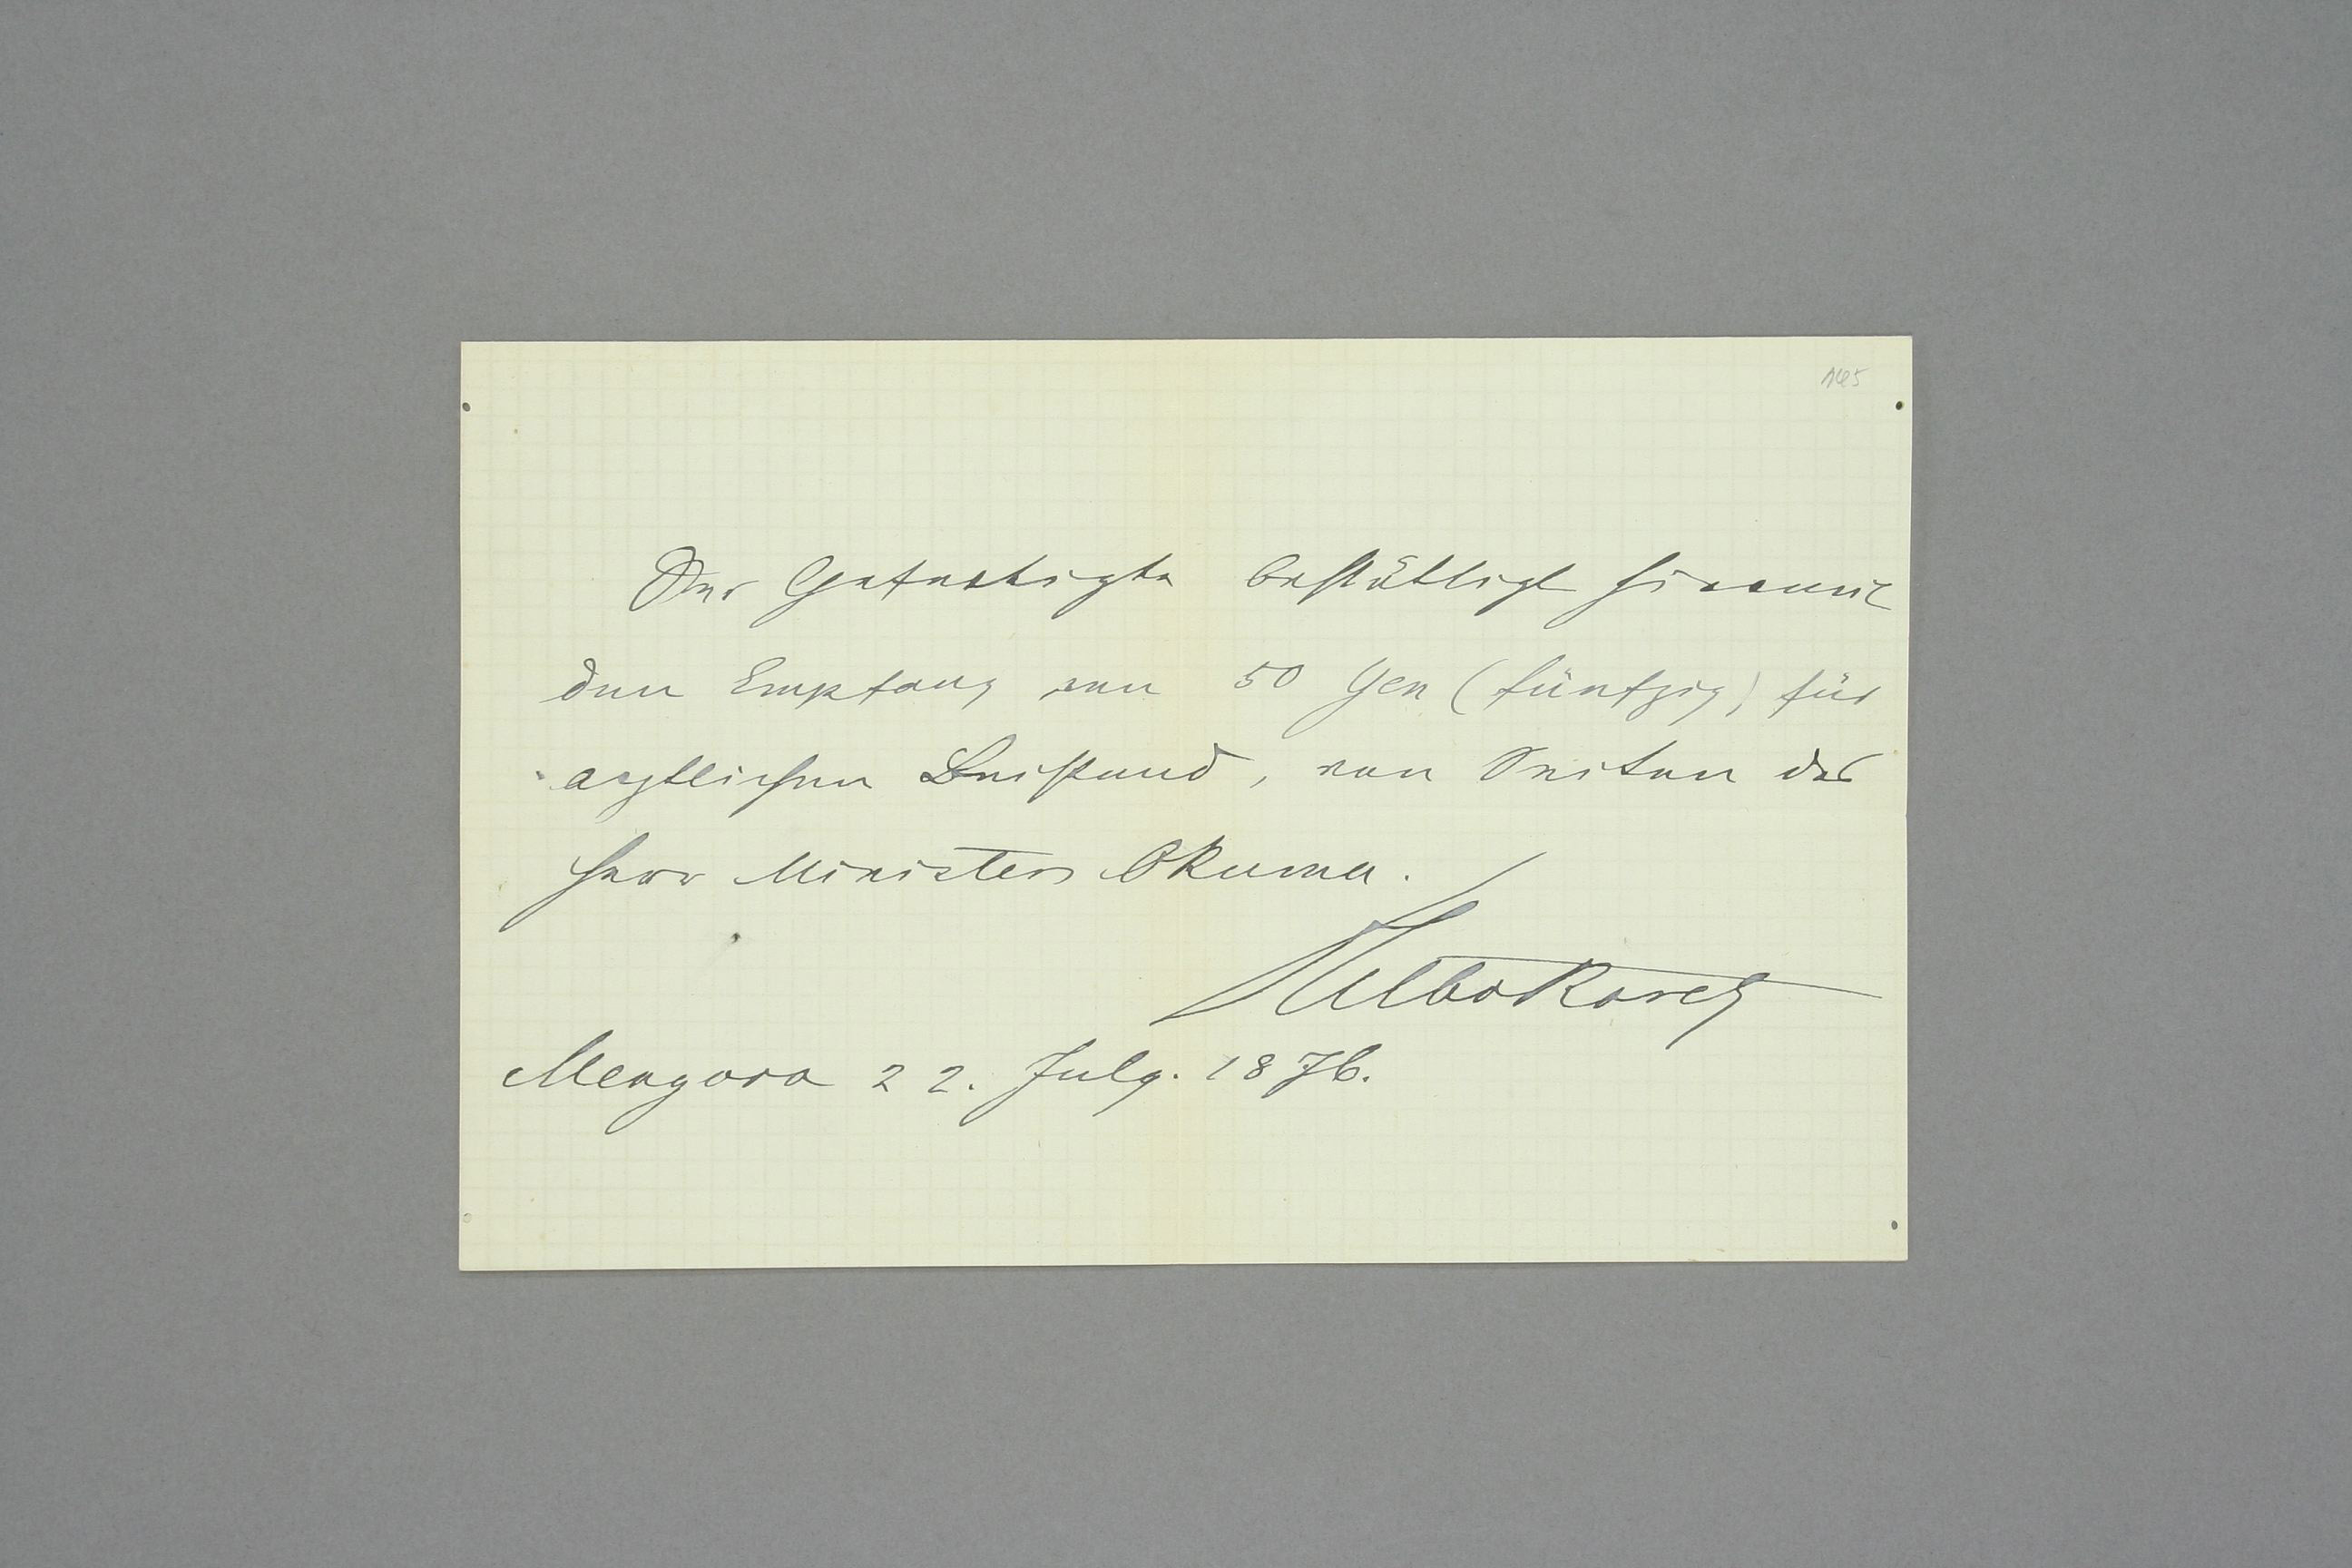 145
Der Gefertigte bestättigt hiermit
den Empfang von 50 Yen (fünfzig) für
arztlichen Beistand, von Seiten des
Herr Ministers Okuma.
22. July. 1876.